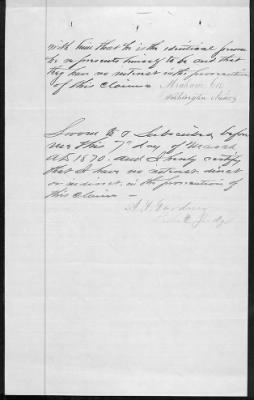 with him that he is the identical person
he represents himself to be and that
they have no interest in the prosecution
of this Claim
Washington
Sworn to & Subscribed before
me this 7" day of March
A.D. 1870. and I hereby certify
that I have no interest direct
or indirect, in the prosecution of
this Claim —